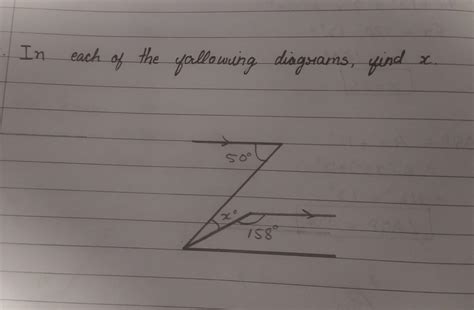 In each of the following diagrams, find x.
50°
x°
158°